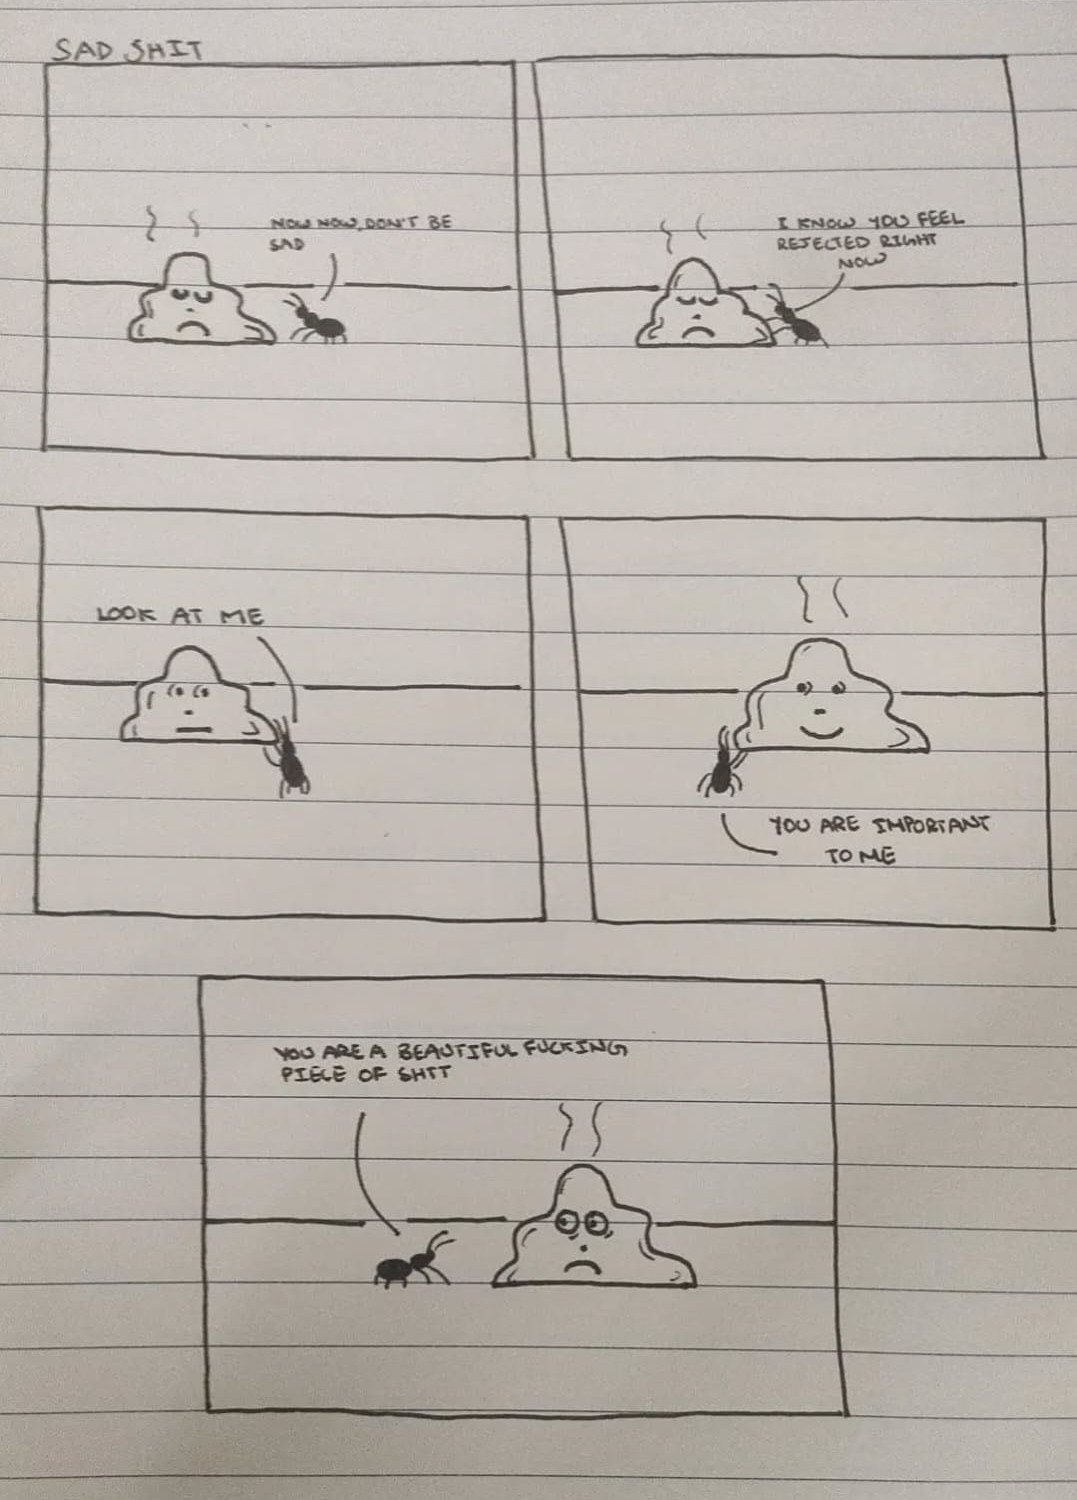 SAD SHIT
NOW NOW, DON'T BE
SAD
I KNOW YOU FEEL
REJECTED RIGHT
NOW
LOOK AT ME
YOU ARE IMPORTANT
TO ME
YOU ARE A BEAUTIFUL FUCKING
PIECE OF SHIT